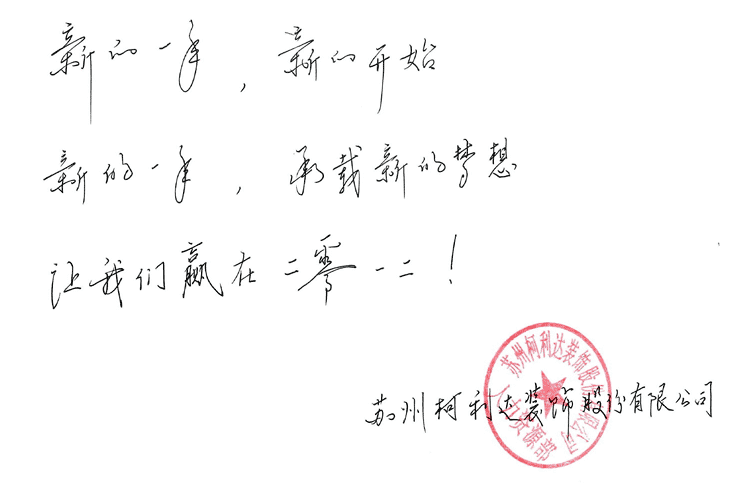 新的一年，新的开始
新的一年，承载新的梦想
让我们赢在二零一二！
苏州柯利达装饰股份有限公司
苏州柯利达装饰股份有限公司
人力资源部